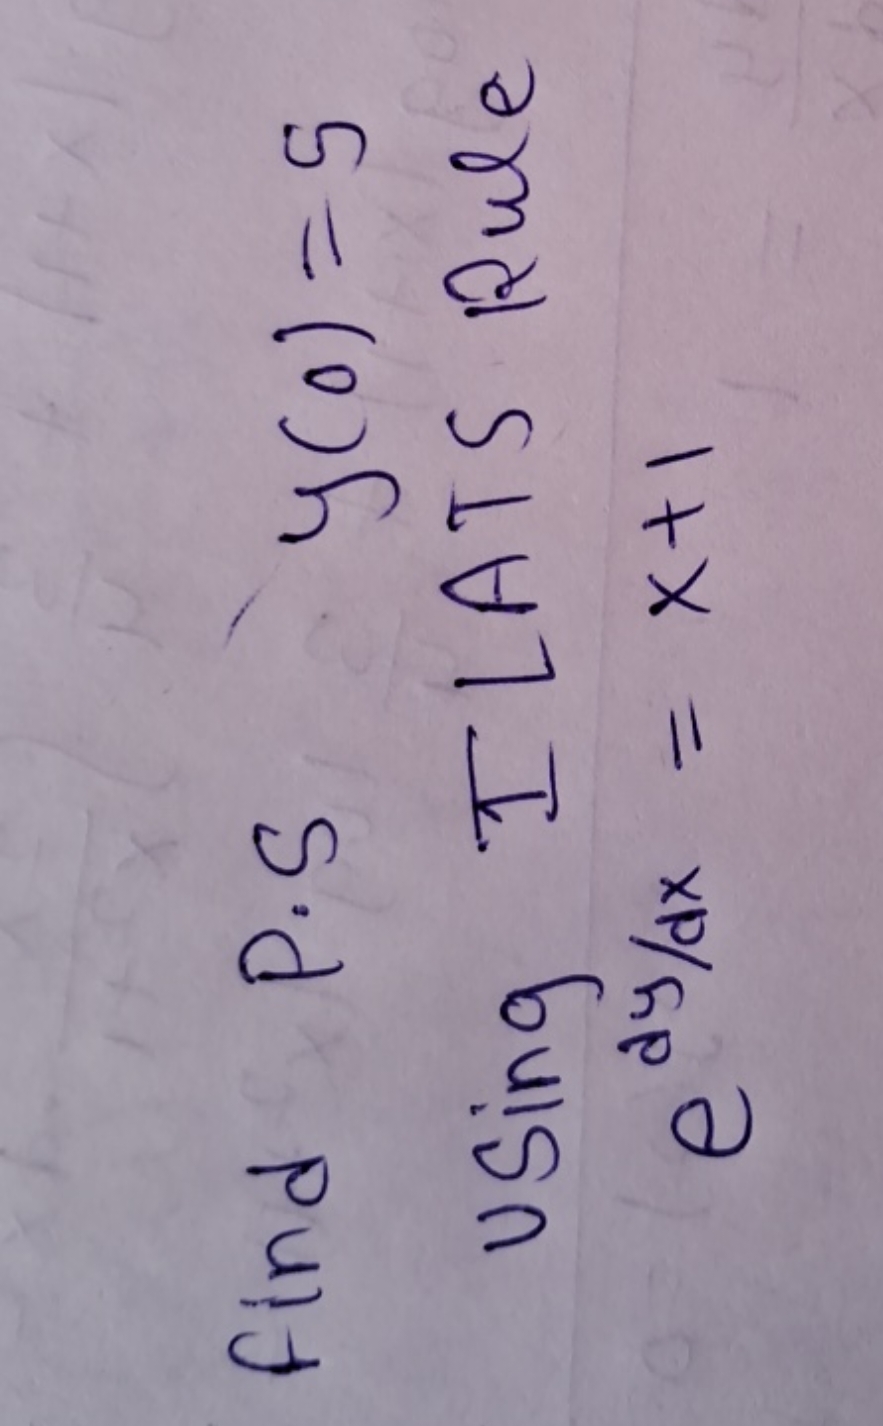 find P.S y(0) = 5
using ILATS Rule
e^dy/dx = x+1